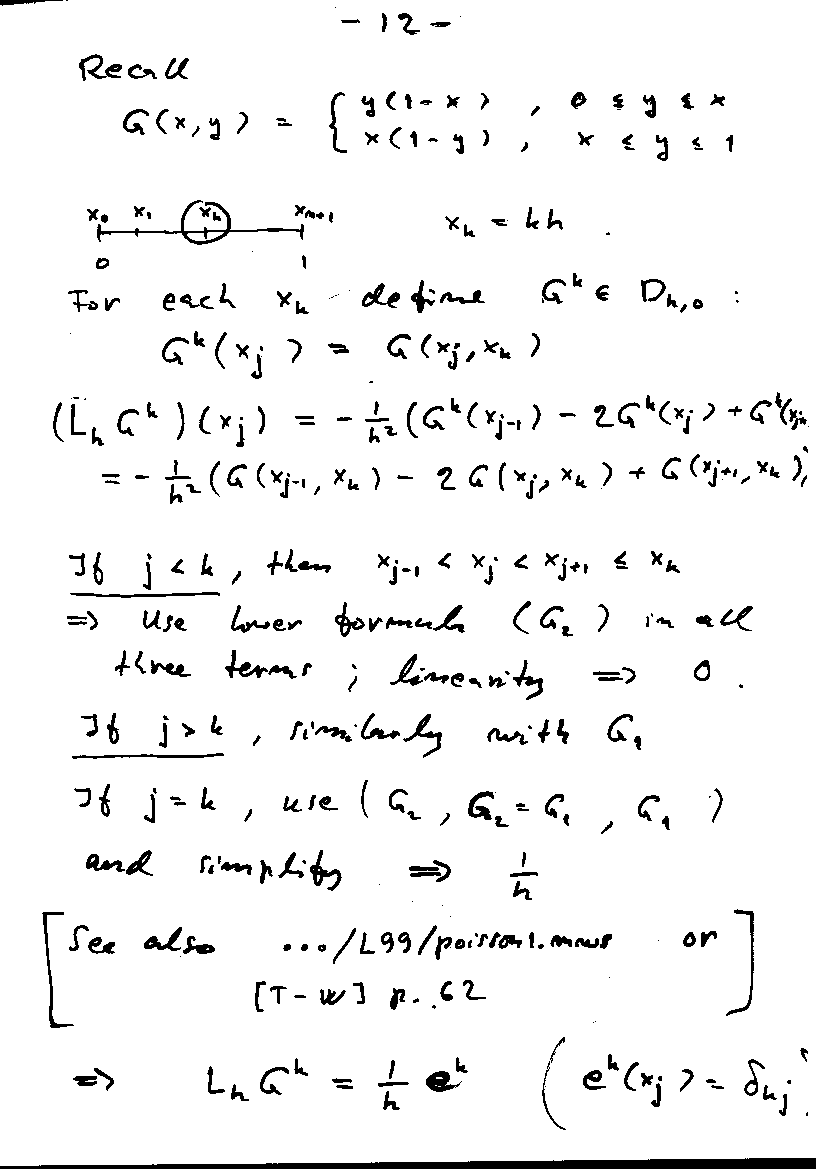 - 12 -
Recall
G(x,y) = { y(1-x) , 0 ≤ y ≤ x
x(1-y) , x ≤ y ≤ 1
x₀ x₁ xₖ xₙ₊₁ xₖ = kh .
0 1
For each xₖ define Gᵏ ∈ Dₕ,₀ :
Gᵏ(xⱼ) = G(xⱼ, xₖ)
(Lₕ Gᵏ)(xⱼ) = - 1/h² (Gᵏ(xⱼ₋₁) - 2Gᵏ(xⱼ) + Gᵏ(xⱼ₊
= - 1/h² (G(xⱼ₋₁, xₖ) - 2G(xⱼ, xₖ) + G(xⱼ₊₁, xₖ))
If j < k, then xⱼ₋₁ < xⱼ < xⱼ₊₁ ≤ xₖ
=> Use lower formula (G₂) in all
three terms ; linearity => 0 .
If j > k, similarly with G₁
If j = k, use (G₂, G₂ = G₁, G₁)
and simplify => 1/h
[See also .../L99/poisson1.mws or
[T-W] p. 62]
=> Lₕ Gᵏ = 1/h eᵏ (eᵏ(xⱼ) = δₖⱼ)